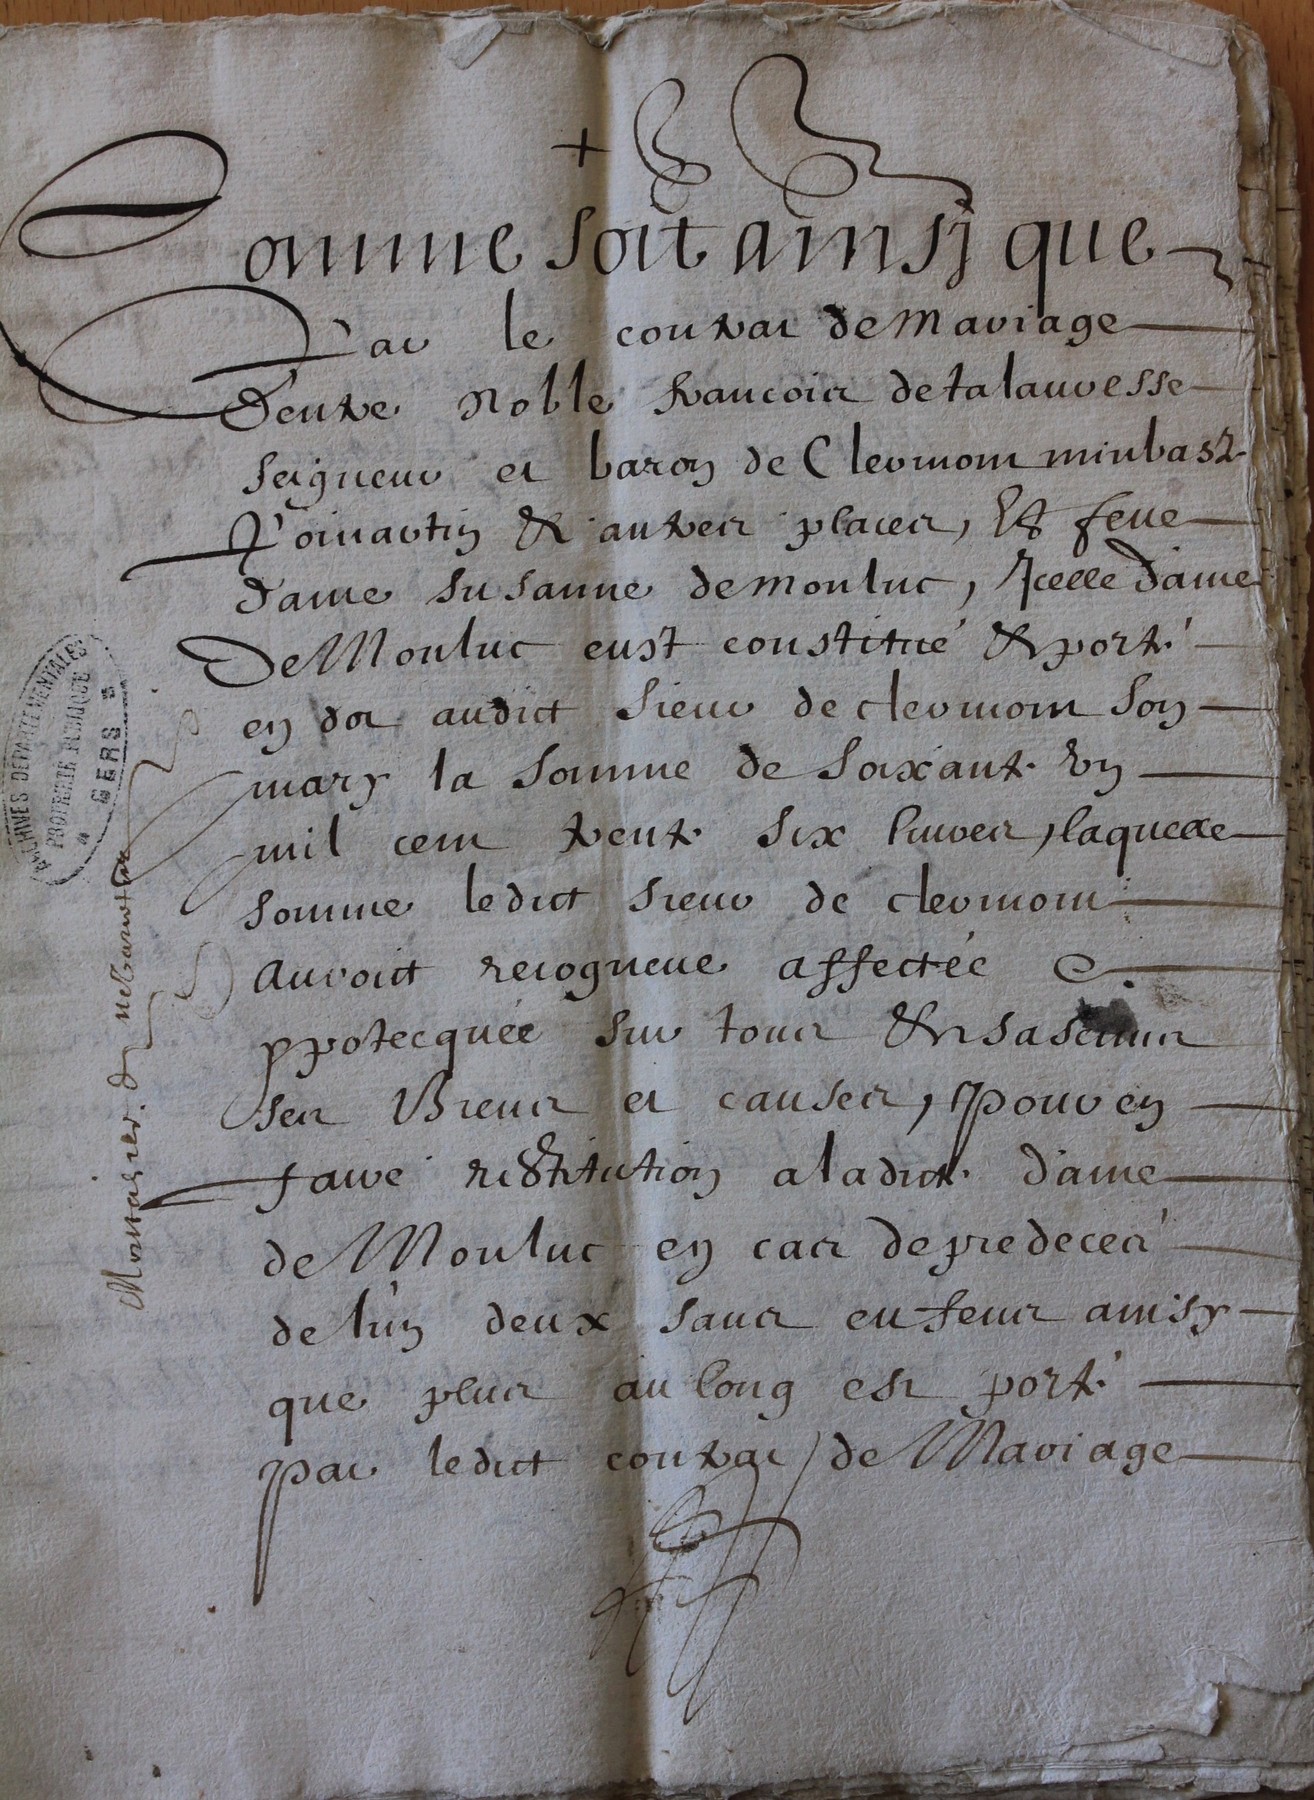 Comme soit ainsy que
Par le contrat de Mariage
d'entre Noble francois de talauresse
seigneur et baron de Clermont minbaste
Poimartin & autres places, Et feue
dame Susanne de Monluc, Icelle dame
De Monluc eust constitué & porté
en dot audict sieur de clermont son
mary la somme de soixante Un
mil cent trente six livres, laquelle
somme ledict sieur de clermont
auroit recogneue affectée &
ypotecquée sur tous & chascuns
ses Biens et causes, pour en
faire restitution a ladicte dame
de Monluc en cas de predeces
de l'un deux sans enfens ainsy
que plus au long est porté
par ledict contrat de Mariage
ARCHIVES DEPARTEMENTALES
PROPRIETE PUBLIQUE
GERS